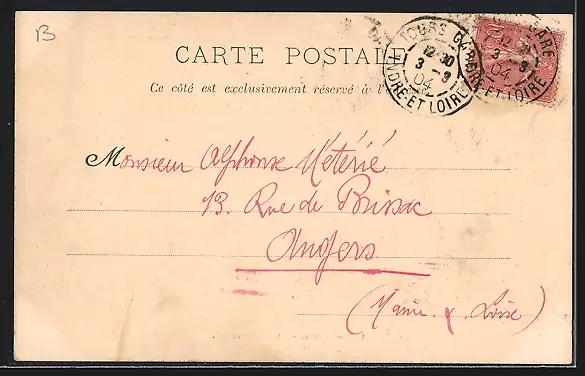 B
CARTE POSTALE
Ce côté est exclusivement réservé à l'adresse
TOURS GARE
12-30
3 -3
04
INDRE-ET-LOIRE
GARE
3 -3
04
INDRE-ET-LOIRE
10
Monsieur Alphonse Métérié
13. Rue de Brissac
Angers
(Maine & Loire)